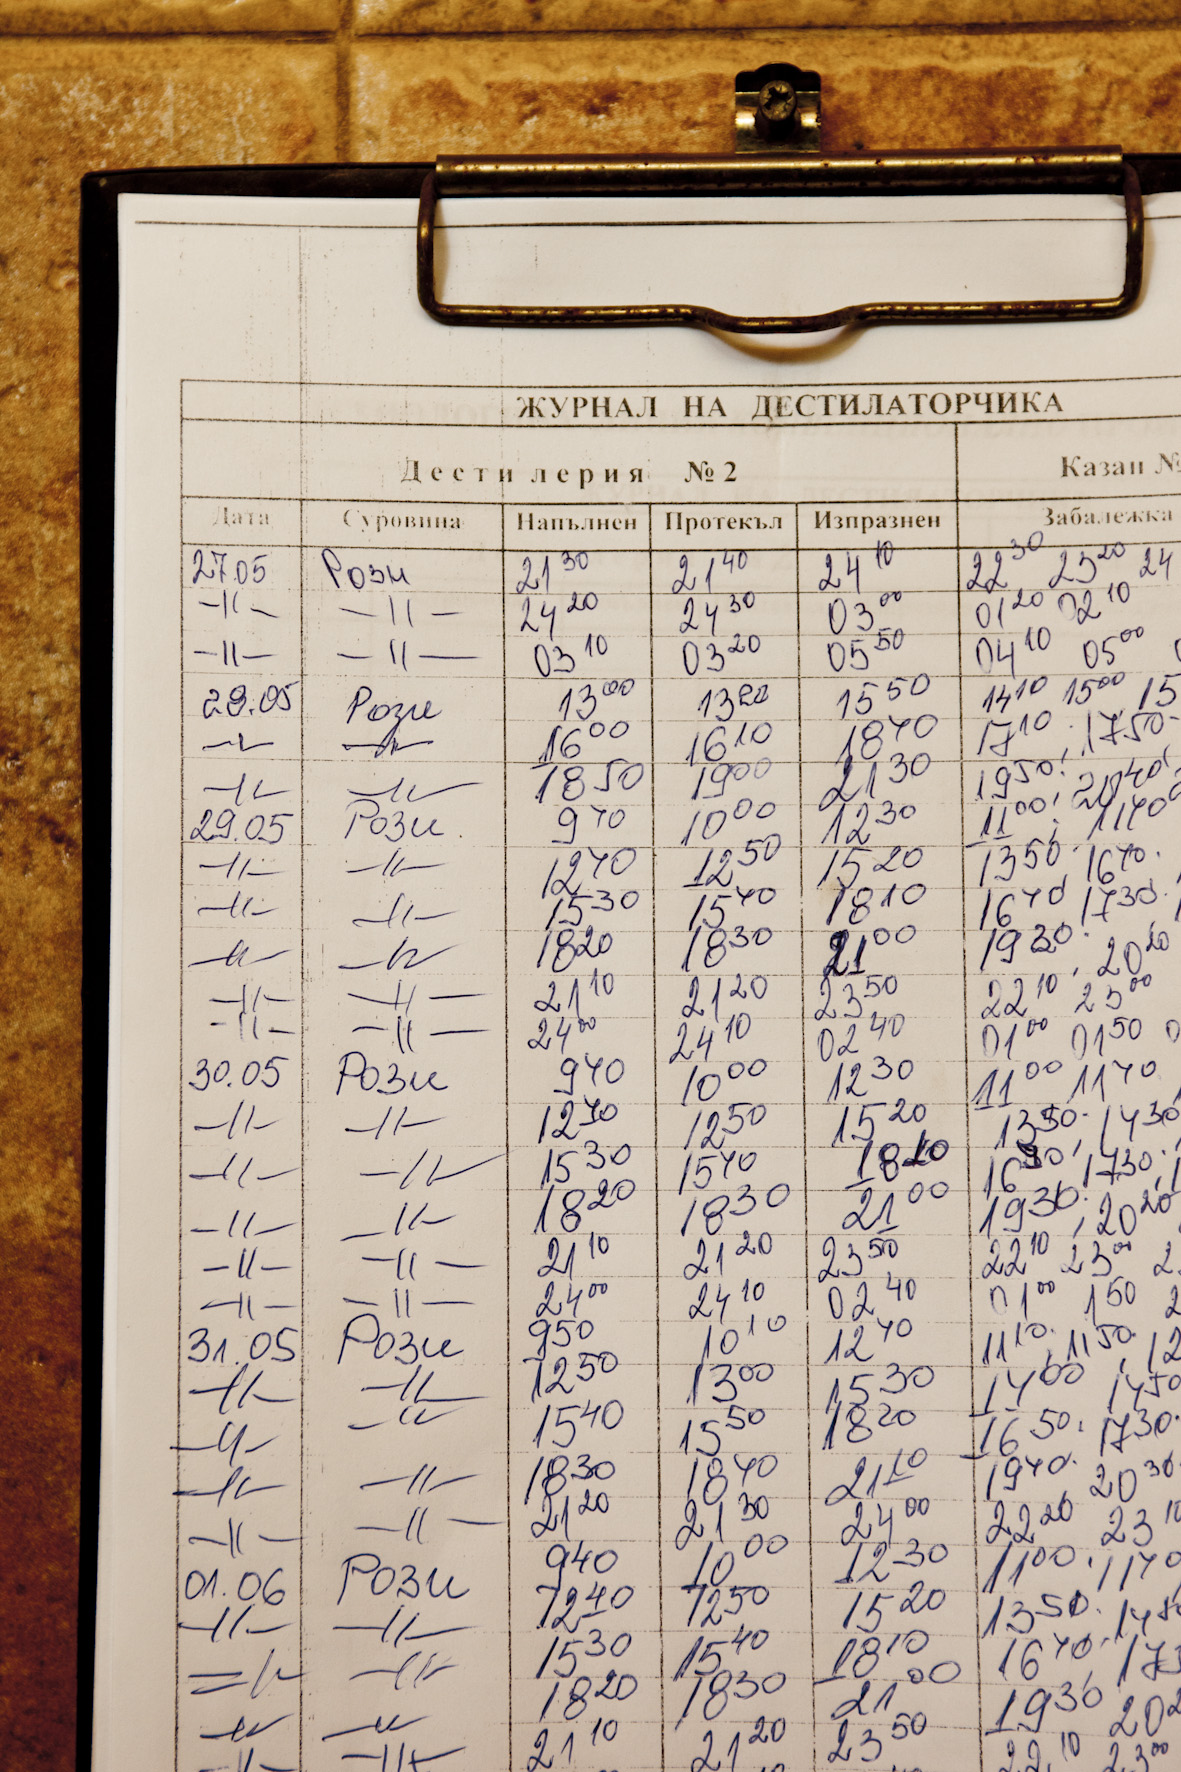 ЖУРНАЛ НА ДЕСТИЛАТОРЧИКА
Дестилерия № 2 Казан №
Дата Суровина Напълнен Протекъл Изпразнен Забалежка
27.05 Рози 21 30 21 40 24 10 22 30 23 20 24
-〃- -〃- 24 20 24 30 03 00 01 20 02 10
-〃- -〃- 03 10 03 20 05 50 04 10 05 00
28.05 Рози 13 00 13 20 15 50 14 10 15 00 15
-〃- -〃- 16 00 16 10 18 40 17 10 17 50
-〃- -〃- 18 50 19 00 21 30 19 50
29.05 Рози 9 40 10 00 12 30 11 00 11 40
-〃- -〃- 12 40 12 50 15 20 13 50 16 40
-〃- -〃- 15 30 15 40 18 10 16 40 17 30
-〃- -〃- 18 20 18 30 21 00 19 30 20 20
-〃- -〃- 21 10 21 20 23 50 22 10 23 00
-〃- -〃- 24 00 24 10 02 40 01 00 01 50
30.05 Рози 9 40 10 00 12 30 11 00 11 40
-〃- -〃- 12 40 12 50 15 20 13 50 14 30
-〃- -〃- 15 30 15 40 18 10 16 17 30
-〃- -〃- 18 20 18 30 21 00 19 30 20 20
-〃- -〃- 21 10 21 20 23 50 22 10 23 00
-〃- -〃- 24 00 24 10 02 40 01 00 1 50
31.05 Рози 9 50 10 10 12 40 11 10 11 50 12
-〃- -〃- 12 50 13 00 15 30 14 00 14 50
-〃- -〃- 15 40 15 50 18 20 16 50 17 30
-〃- -〃- 18 30 18 40 21 10 19 40 20 30
-〃- -〃- 21 20 21 30 24 00 22 20 23 10
01.06 Рози 9 40 10 00 12 30 11 00 11 40
-〃- -〃- 12 40 12 50 15 20 13 50
-〃- -〃- 15 30 15 40 18 10 16 40
-〃- -〃- 18 20 18 30 21 00 19 30
-〃- -〃- 21 10 21 20 23 50 22 10 23 00